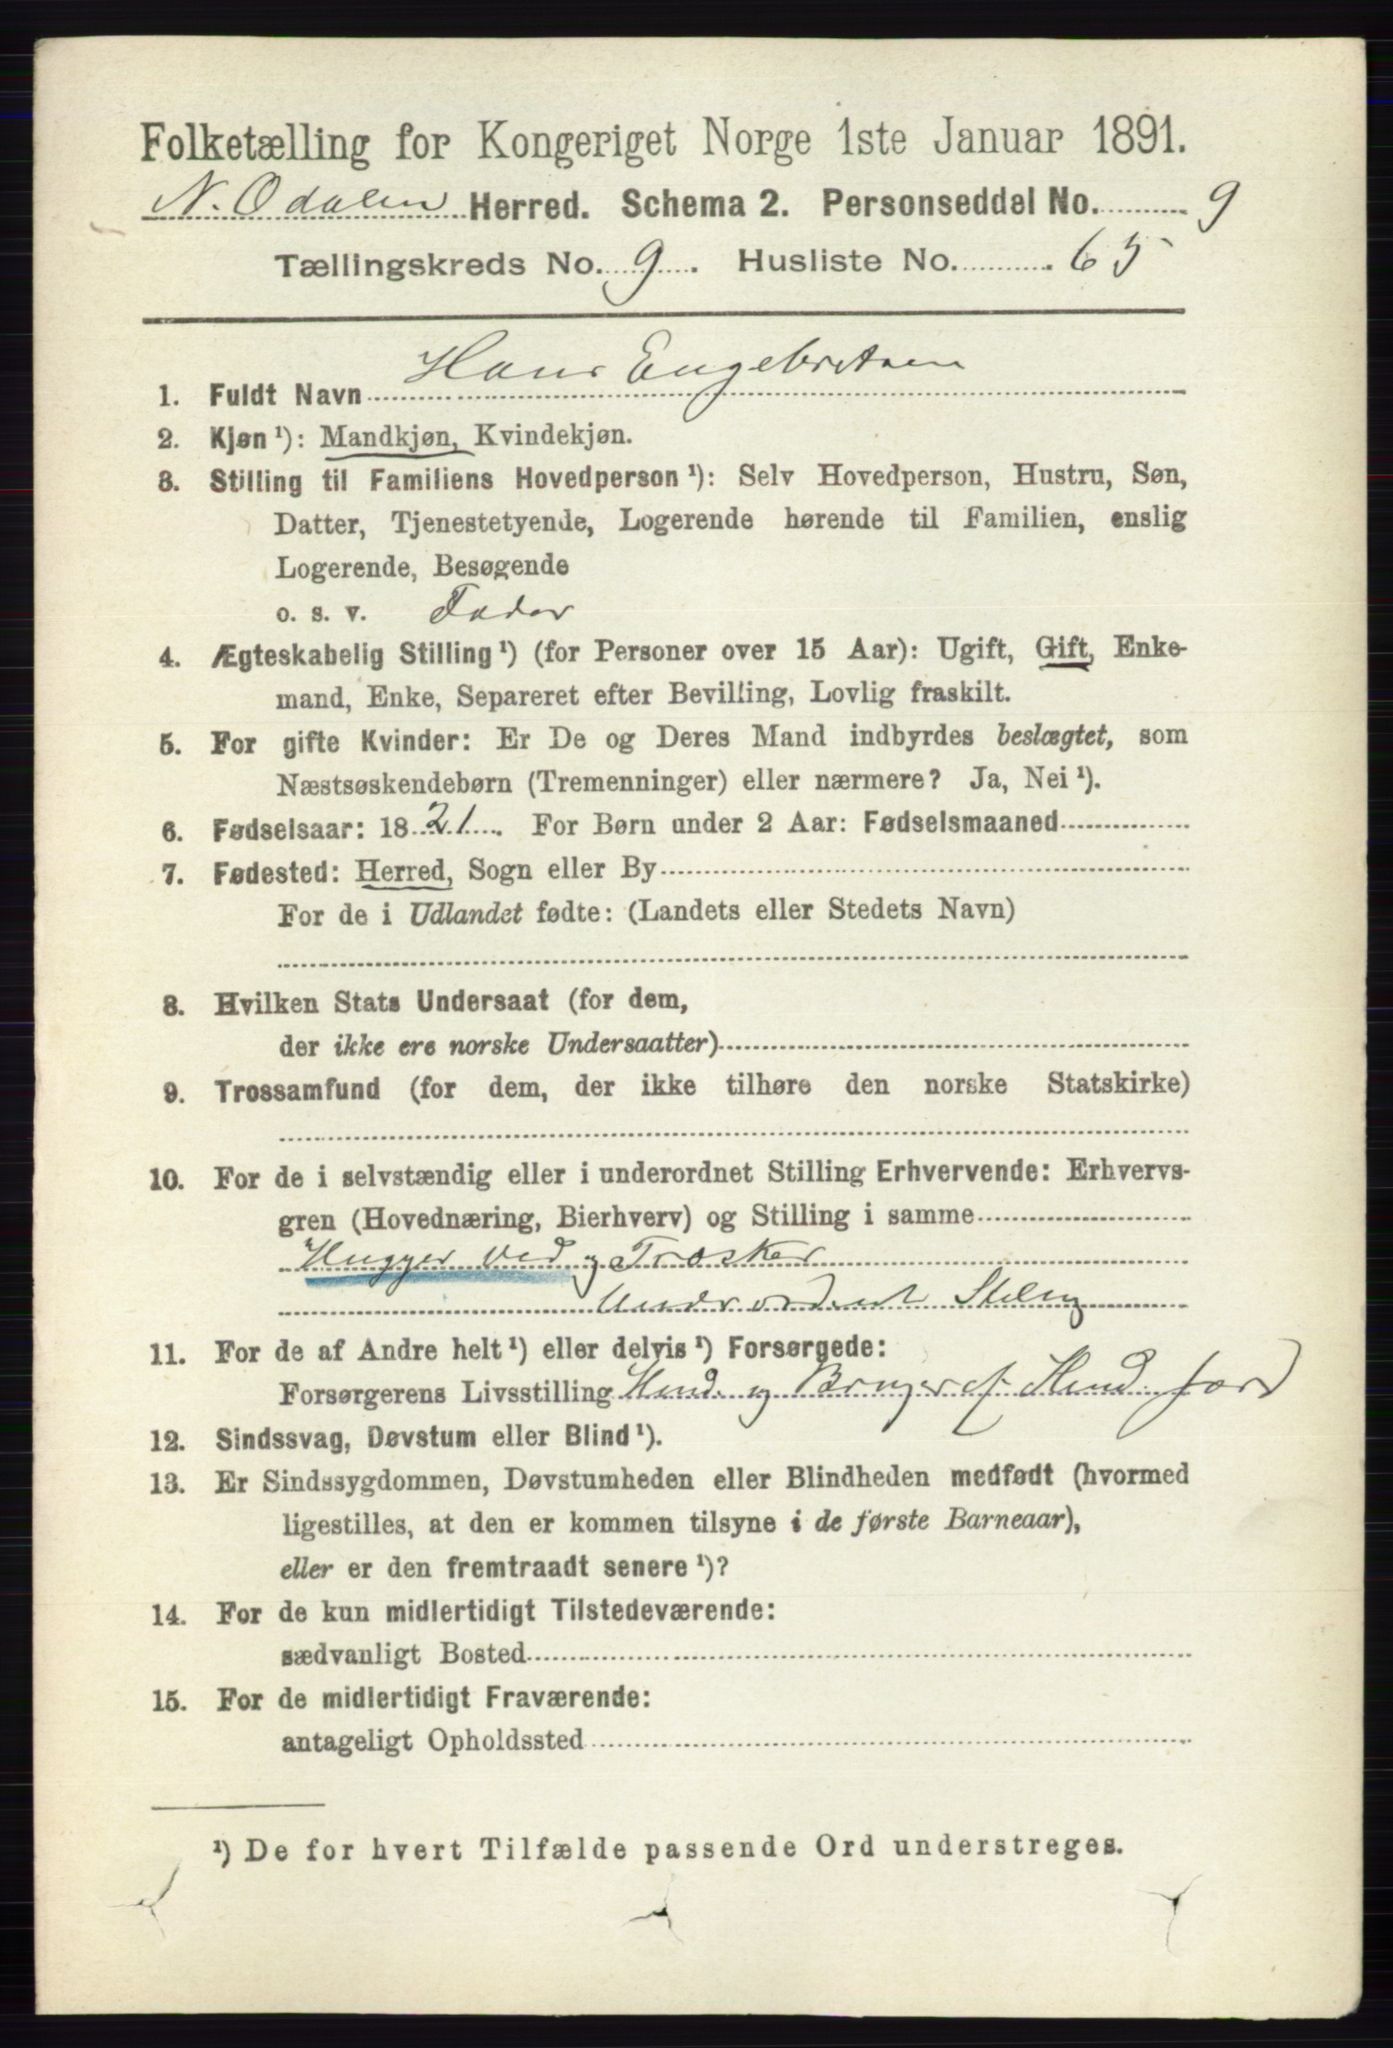 Folketælling for Kongeriget Norge 1ste Januar 1891.
N. Odalen Herred. Schema 2. Personseddel No. 9
Tællingskreds No. 9. Husliste No. 65
1. Fuldt Navn Hans Engebretsen
2. Kjøn ¹): Mandkjøn, Kvindekjøn.
3. Stilling til Familiens Hovedperson ¹): Selv Hovedperson, Hustru, Søn,
Datter, Tjenestetyende, Logerende hørende til Familien, enslig
Logerende, Besøgende
o. s. v. Fader
4. Ægteskabelig Stilling ¹) (for Personer over 15 Aar): Ugift, Gift, Enke-
mand, Enke, Separeret efter Bevilling, Lovlig fraskilt.
5. For gifte Kvinder: Er De og Deres Mand indbyrdes beslægtet, som
Næstsøskendebørn (Tremenninger) eller nærmere? Ja, Nei ¹).
6. Fødselsaar: 1821. For Børn under 2 Aar: Fødselsmaaned
7. Fødested: Herred, Sogn eller By
For de i Udlandet fødte: (Landets eller Stedets Navn)
8. Hvilken Stats Undersaat (for dem,
der ikke ere norske Undersaatter)
9. Trossamfund (for dem, der ikke tilhøre den norske Statskirke)
10. For de i selvstændig eller i underordnet Stilling Erhvervende: Erhvervs-
gren (Hovednæring, Bierhverv) og Stilling i samme
Hugger Ved og Træsker
Underordent Steling
11. For de af Andre helt ¹) eller delvis ¹) Forsørgede:
Forsørgerens Livsstilling og Bruger af jord
12. Sindssvag, Døvstum eller Blind ¹).
13. Er Sindssygdommen, Døvstumheden eller Blindheden medfødt (hvormed
ligestilles, at den er kommen tilsyne i de første Barneaar),
eller er den fremtraadt senere ¹)?
14. For de kun midlertidigt Tilstedeværende:
sædvanligt Bosted
15. For de midlertidigt Fraværende:
antageligt Opholdssted
¹) De for hvert Tilfælde passende Ord understreges.